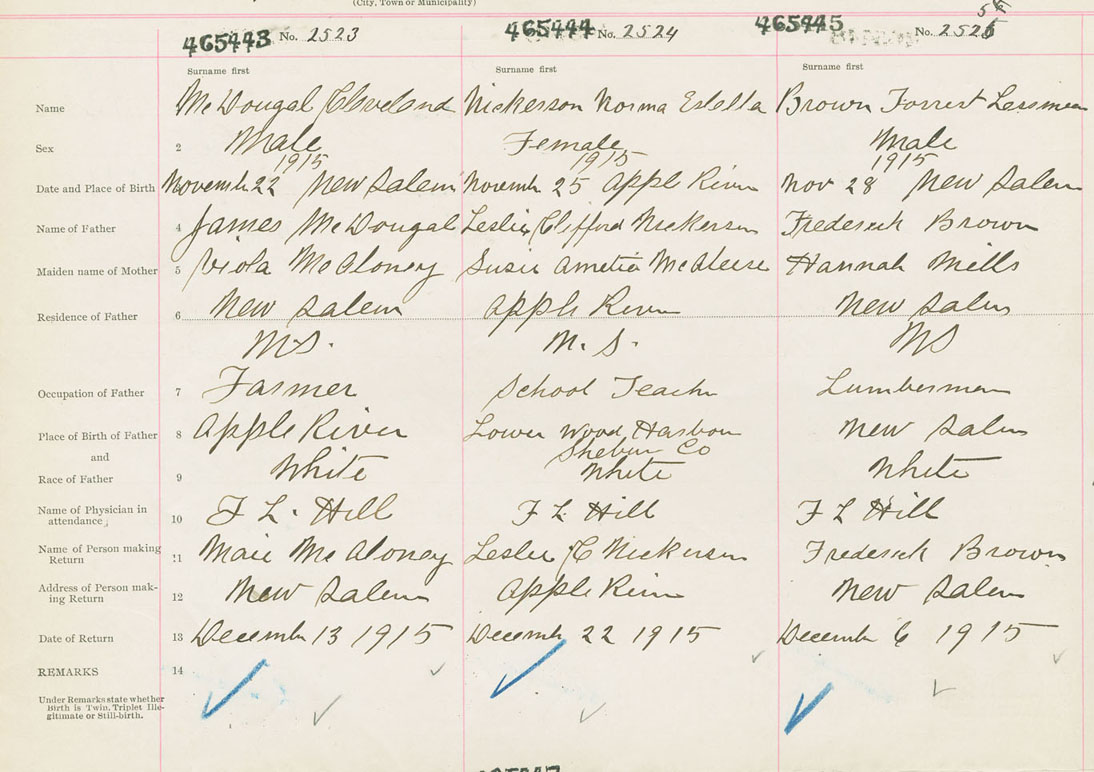 (City, Town or Municipality)
465443 No. 2523 465444 No. 2524 465445 No. 2525
Surname first Surname first Surname first
Name McDougal Cleveland Nickerson Norma Estella Brown Forrest
Sex 2 Male Female Male
1915 1915 1915
Date and Place of Birth November 22 New Salem November 25 Apple River Nov 28 New Salem
Name of Father 4 James McDougal Leslie Clifford Nickerson Frederick Brown
Maiden name of Mother 5 Viola McAloney Susie Amelia McAleese Hannah Mills
Residence of Father 6 New Salem Apple River New Salem
N.S. N.S. NS
Occupation of Father 7 Farmer School Teacher Lumberman
Place of Birth of Father 8 Apple River Lower Wood Harbour New Salem
and Shelburn Co
Race of Father 9 White White White
Name of Physician in
attendance, 10 F L. Hill F L Hill F L Hill
Name of Person making
Return 11 McAloney Leslie C Nickerson Frederick Brown
Address of Person mak-
ing Return 12 New Salem Apple River New Salem
Date of Return 13 December 13 1915 December 22 1915 December 6 1915
REMARKS 14
Under Remarks state whether
Birth is Twin, Triplet Ille-
gitimate or Still-birth.